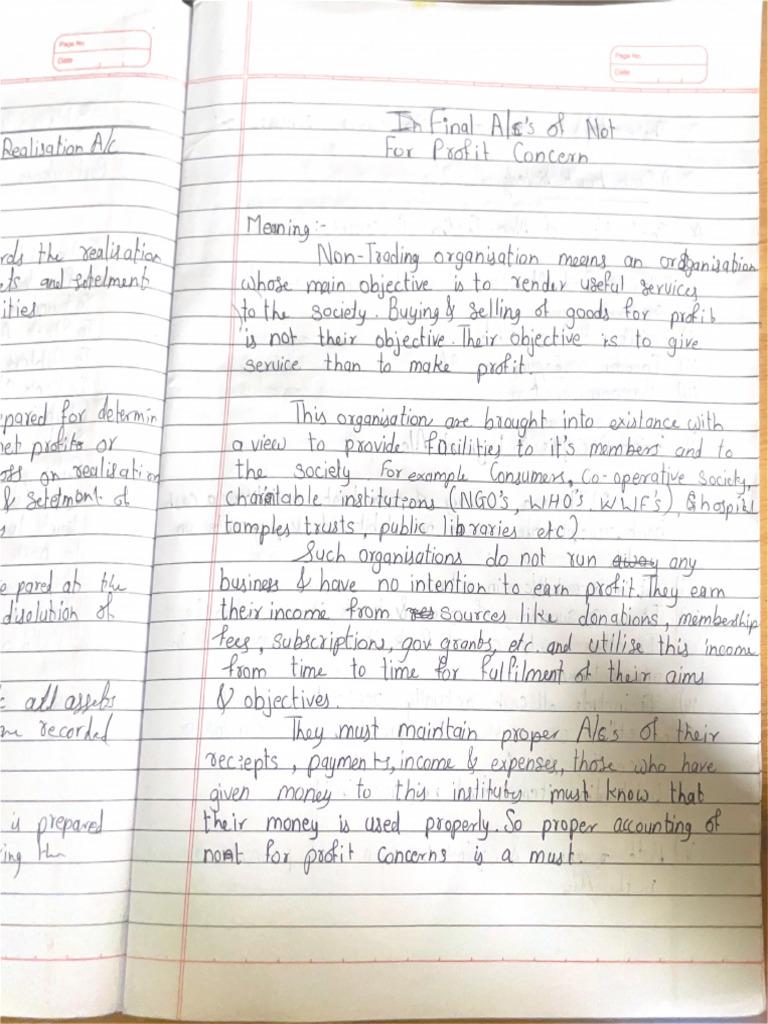 Page No.
Date
Realisation A/c
rds the realisation
ts and setelment
ities
pared for determin
net profits or
oss on realisation
& setetment of
s
e pared at the
disolution of
all assets
recorded
is prepared
ing the
Page No.
Date
In Final A/c's of Not
For Profit Concern
Meaning :-
Non-Trading organisation means an organisation
whose main objective is to render useful services
to the society. Buying & selling of goods for profit
is not their objective. Their objective is to give
service than to make profit.
This organisation are brought into existance with
a view to provide facilities to it's members and to
the society For example Consumers, Co-operative Society,
charitable institutions (NGO's, WHO's, WWF's), & hospitl
tamples trusts, public libraries etc).
Such organisations do not run away any
business & have no intention to earn profit. They earn
their income from res sources like donations, membership
fees, subscriptions, gov grants, etc. and utilise this income
from time to time for fulfilment of their aims
& objectives.
They must maintain proper A/c's of their
reciepts, payments, income & expenses, those who have
given money to this institutes must know that
their money is used properly. So proper accounting of
not for profit concerns is a must.